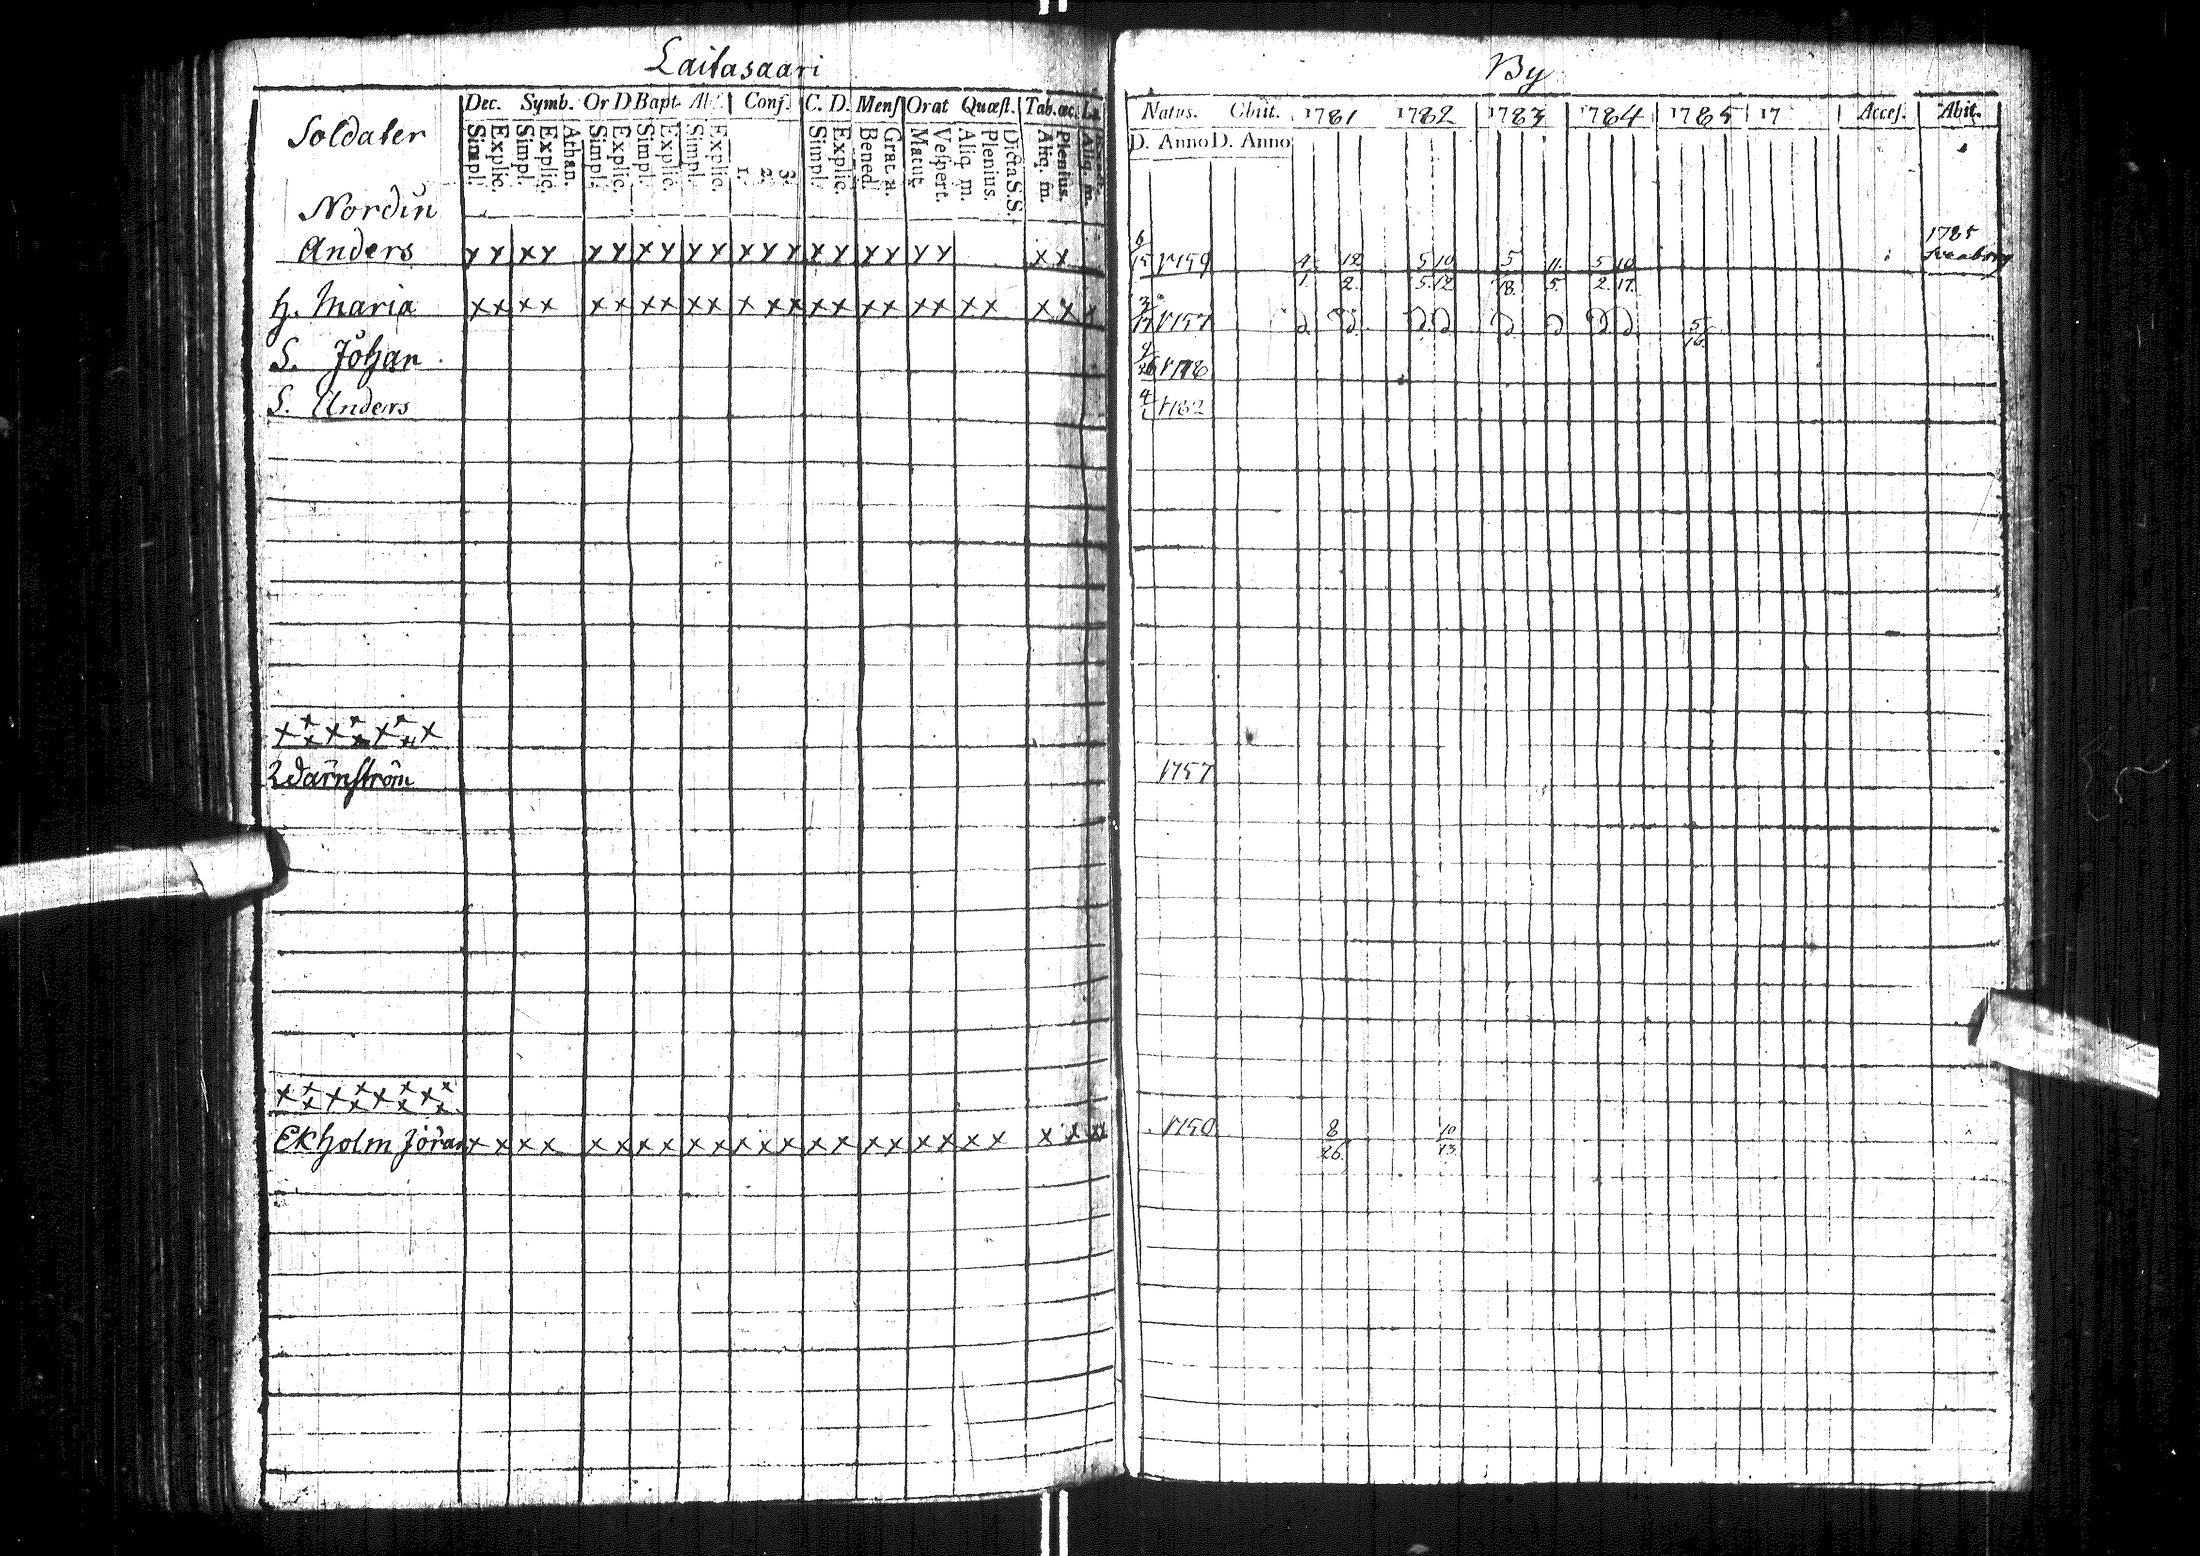 Laitasaari
By
Soldater
Dec. Symb. Or D Bapt. Abs. Conf. C. D. Mens Orat Quæst. Tab. œc.
Simpl. Explic. Simpl. Explic. Athan. Simpl. Explic. Simpl. Explic. Simpl. Explic. 1. 2. 3. Simpl. Explic. Bened. Grat. a. Matut. Vespert. Aliq. m. Plenius. Dicta S. S. Aliq. m. Plenius. Aliq. m.
Natus. Obiit. 1781 1782 1783 1784 1785 17 Acces. Abit.
D. Anno D. Anno
Nordin
Anders y y x y y y x y y y y y y x y y y y y x x 6/15 1759 4/1. 12/2. 5/5. 10/12. 5/18. 11./5. 5/2. 10/17. 1785 Sveaborg
H. Maria x x x x x x x x x x x x x x x x x x x x x x x x 3/17 1757 5/16.
S. Johan 1778
S. Anders 4/1 1782
x x x x x x x x x x
Wärnström 1757
x x x x x x x x x x x
Ekholm Jöran x x x x x x x x x x x x x x x x x x x x x x x x 1750 8/26. 10/13.